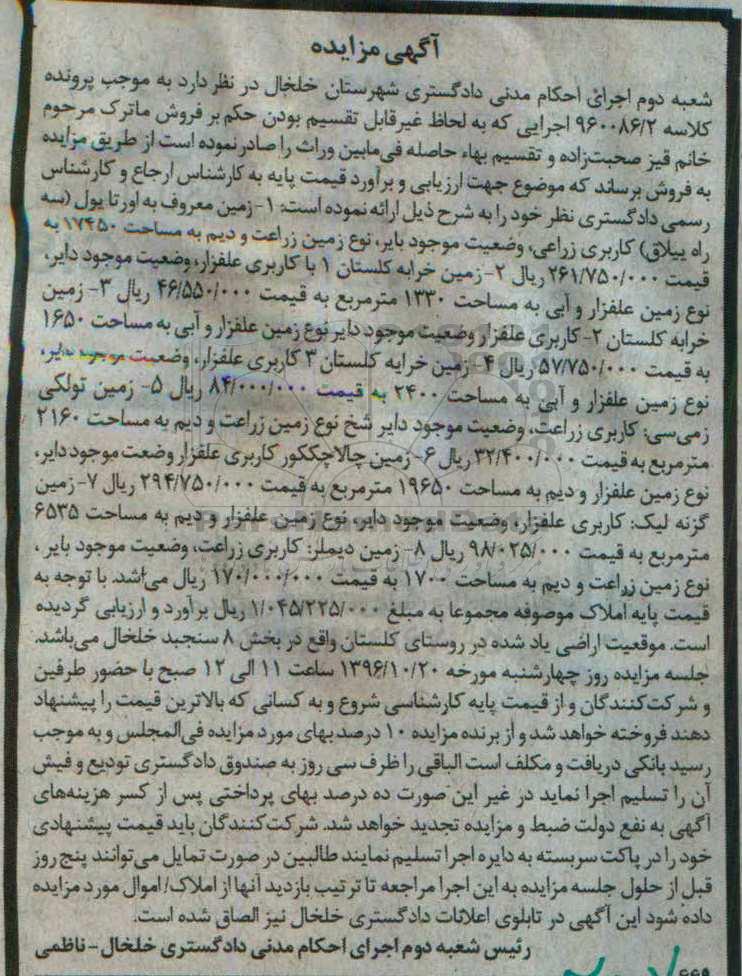 آگهی مزایده
شعبه دوم اجرای احکام مدنی دادگستری شهرستان خلخال در نظر دارد به موجب پرونده
کلاسه ۹۶۰۰۸۶/۲ اجرایی که به لحاظ غیرقابل تقسیم بودن حکم بر فروش ماترک مرحوم
خانم قیز صحبت‌زاده و تقسیم بهاء حاصله فی‌مابین وراث را صادر نموده است از طریق مزایده
به فروش برساند که موضوع جهت ارزیابی و برآورد قیمت پایه به کارشناس ارجاع و کارشناس
رسمی دادگستری نظر خود را به شرح ذیل ارائه نموده است: ۱- زمین معروف به اورتا یول (سه
راه ییلاق) کاربری زراعی، وضعیت موجود بایر، نوع زمین زراعت و دیم به مساحت ۱۷۴۵۰ به
قیمت ۲۶۱/۷۵۰/۰۰۰ ریال ۲- زمین خرابه کلستان ۱ با کاربری علفزار، وضعیت موجود دایر،
نوع زمین علفزار و آبی به مساحت ۱۳۳۰ مترمربع به قیمت ۴۶/۵۵۰/۰۰۰ ریال ۳- زمین
خرابه کلستان ۲- کاربری علفزار وضعیت موجود دایر نوع زمین علفزار و آبی به مساحت ۱۶۵۰
به قیمت ۵۷/۷۵۰/۰۰۰ ریال ۴- زمین خرابه کلستان ۳ کاربری علفزار، وضعیت موجود دایر،
نوع زمین علفزار و آبی به مساحت ۲۴۰۰ به قیمت ۸۴/۰۰۰/۰۰۰ ریال ۵- زمین تولکی
زمی‌سی: کاربری زراعت، وضعیت موجود دایر شخ نوع زمین زراعت و دیم به مساحت ۲۱۶۰
مترمربع به قیمت ۳۲/۴۰۰/۰۰۰ ریال ۶- زمین چالاچککور کاربری علفزار وضعت موجود دایر،
نوع زمین علفزار و دیم به مساحت ۱۹۶۵۰ مترمربع به قیمت ۲۹۴/۷۵۰/۰۰۰ ریال ۷- زمین
گزنه لیک: کاربری علفزار، وضعیت موجود دایر، نوع زمین علفزار و دیم به مساحت ۶۵۳۵
مترمربع به قیمت ۹۸/۰۲۵/۰۰۰ ریال ۸- زمین دیملر: کاربری زراعت، وضعیت موجود بایر،
نوع زمین زراعت و دیم به مساحت ۱۷۰۰ به قیمت ۱۷۰/۰۰۰/۰۰۰ ریال می‌باشد. با توجه به
قیمت پایه املاک موصوفه مجموعا به مبلغ ۱/۰۴۵/۲۲۵/۰۰۰ ریال برآورد و ارزیابی گردیده
است. موقعیت اراضی یاد شده در روستای کلستان واقع در بخش ۸ سنجبد خلخال می‌باشد.
جلسه مزایده روز چهارشنبه مورخه ۱۳۹۶/۱۰/۲۰ ساعت ۱۱ الی ۱۲ صبح با حضور طرفین
و شرکت‌کنندگان و از قیمت پایه کارشناسی شروع و به کسانی که بالاترین قیمت را پیشنهاد
دهند فروخته خواهد شد و از برنده مزایده ۱۰ درصد بهای مورد مزایده فی‌المجلس و به موجب
رسید بانکی دریافت و مکلف است الباقی را ظرف سی روز به صندوق دادگستری تودیع و فیش
آن را تسلیم اجرا نماید در غیر این صورت ده درصد بهای پرداختی پس از کسر هزینه‌های
آگهی به نفع دولت ضبط و مزایده تجدید خواهد شد. شرکت‌کنندگان باید قیمت پیشنهادی
خود را در پاکت سربسته به دایره اجرا تسلیم نمایند طالبین در صورت تمایل می‌توانند پنج روز
قبل از حلول جلسه مزایده به این اجرا مراجعه تا ترتیب بازدید آنها از املاک/ اموال مورد مزایده
داده شود این آگهی در تابلوی اعلانات دادگستری خلخال نیز الصاق شده است.
رئیس شعبه دوم اجرای احکام مدنی دادگستری خلخال- ناظمی